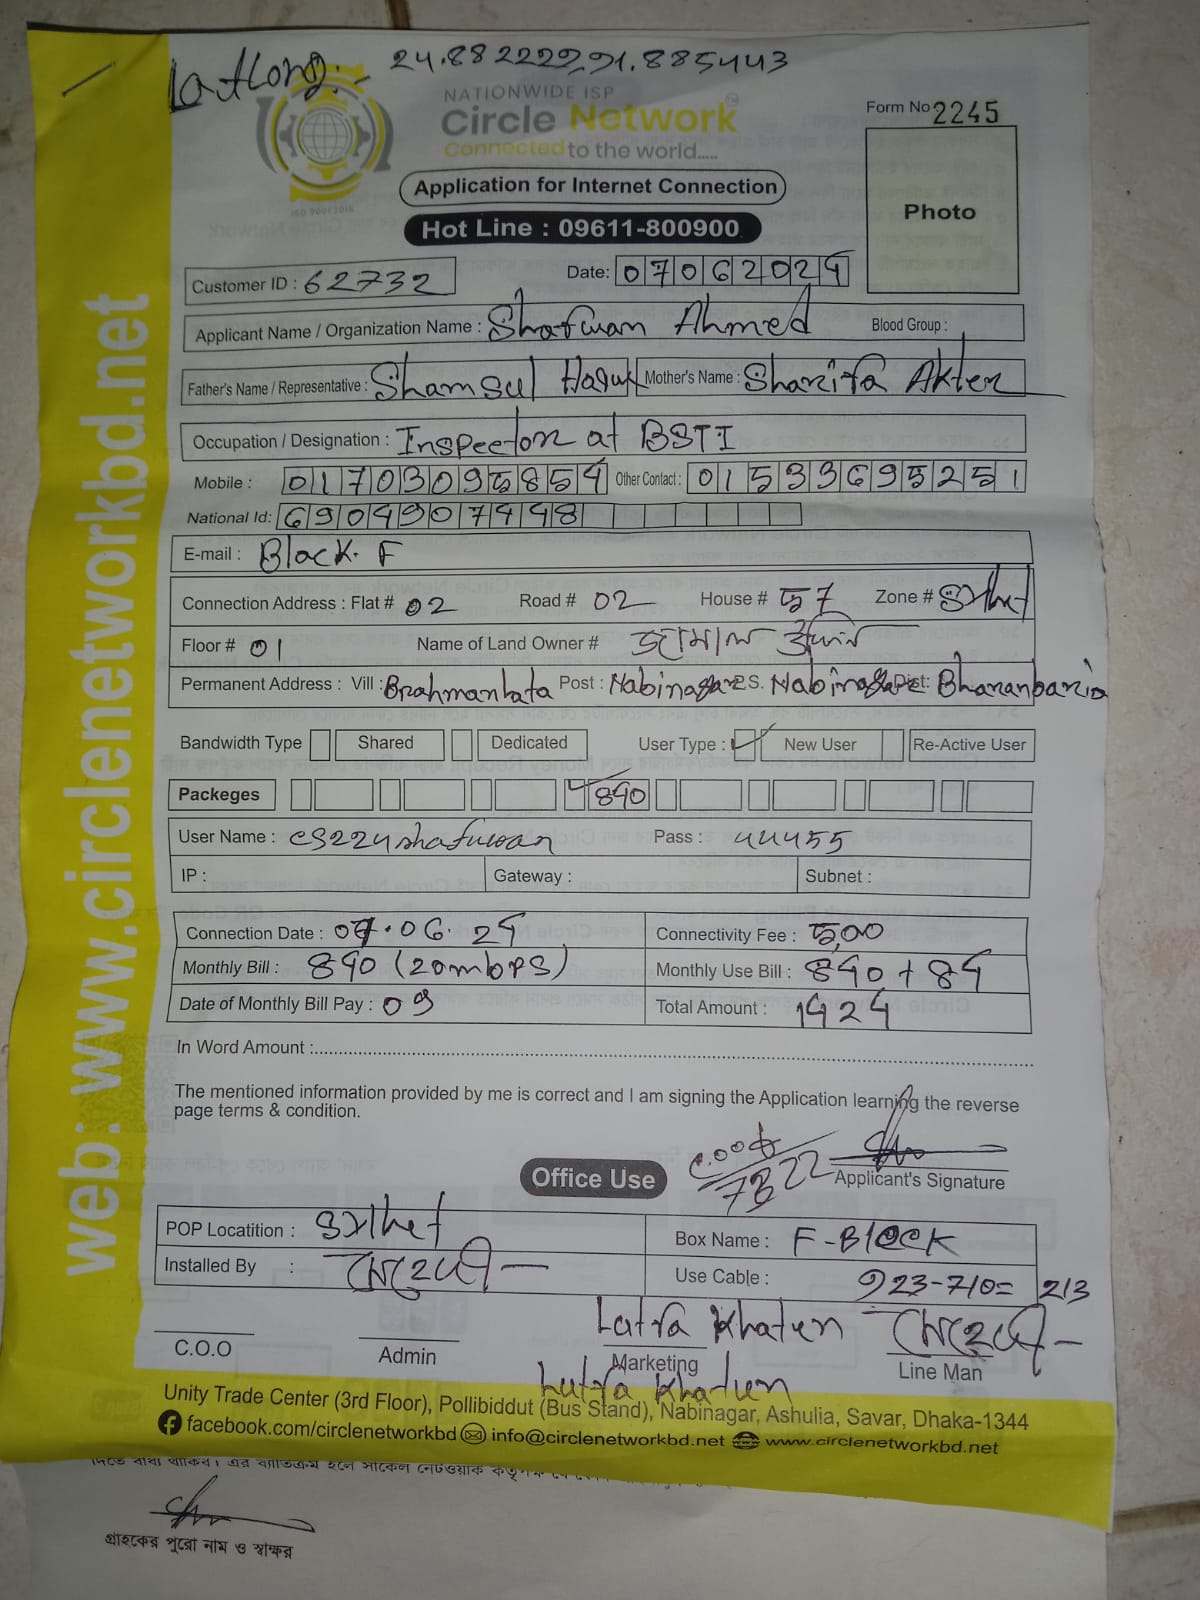 Lat Long:- 24.882222, 91.885443
NATIONWIDE ISP
Circle Network
Connected to the world.....
ISO 9001:2015
Form No 2245
Application for Internet Connection
Photo
Hot Line : 09611-800900
Customer ID : 62732 Date: 07062024
Applicant Name / Organization Name : Shafwan Ahmed Blood Group :
Father's Name / Representative : Shamsul Haque Mother's Name : Sharifa Akter
Occupation / Designation : Inspector at BSTI
Mobile : 01703095854 Other Contact : 01533695251
National Id: 6904907448
E-mail : Block. F
Connection Address : Flat # 02 Road # 02 House # 57 Zone # Sylhet
Floor # 01 Name of Land Owner # জামাল উদ্দিন
Permanent Address : Vill : Brahmanhata Post : Nabinagar P.S. Nabinagar Dist: Bhahanbaria
Bandwidth Type Shared Dedicated User Type : New User Re-Active User
Packeges 840
User Name : cs224shafwan Pass : 44455
IP : Gateway : Subnet :
Connection Date : 07.06.24 Connectivity Fee : 500
Monthly Bill : 840 (20mbps) Monthly Use Bill : 840 + 84
Date of Monthly Bill Pay : 09 Total Amount : 1424
In Word Amount :
The mentioned information provided by me is correct and I am signing the Application learning the reverse
page terms & condition.
Office Use
Applicant's Signature
POP Locatition : Sylhet Box Name : F-Block
Installed By : মেহেদী Use Cable : 923-710= 213
Lutfa Khatun মেহেদী
C.O.O Admin Marketing Line Man
Lutfa Khatun
Unity Trade Center (3rd Floor), Pollibiddut (Bus Stand), Nabinagar, Ashulia, Savar, Dhaka-1344
facebook.com/circlenetworkbd info@circlenetworkbd.net www.circlenetworkbd.net
web: www.circlenetworkbd.net
গ্রাহকের পুরো নাম ও স্বাক্ষর